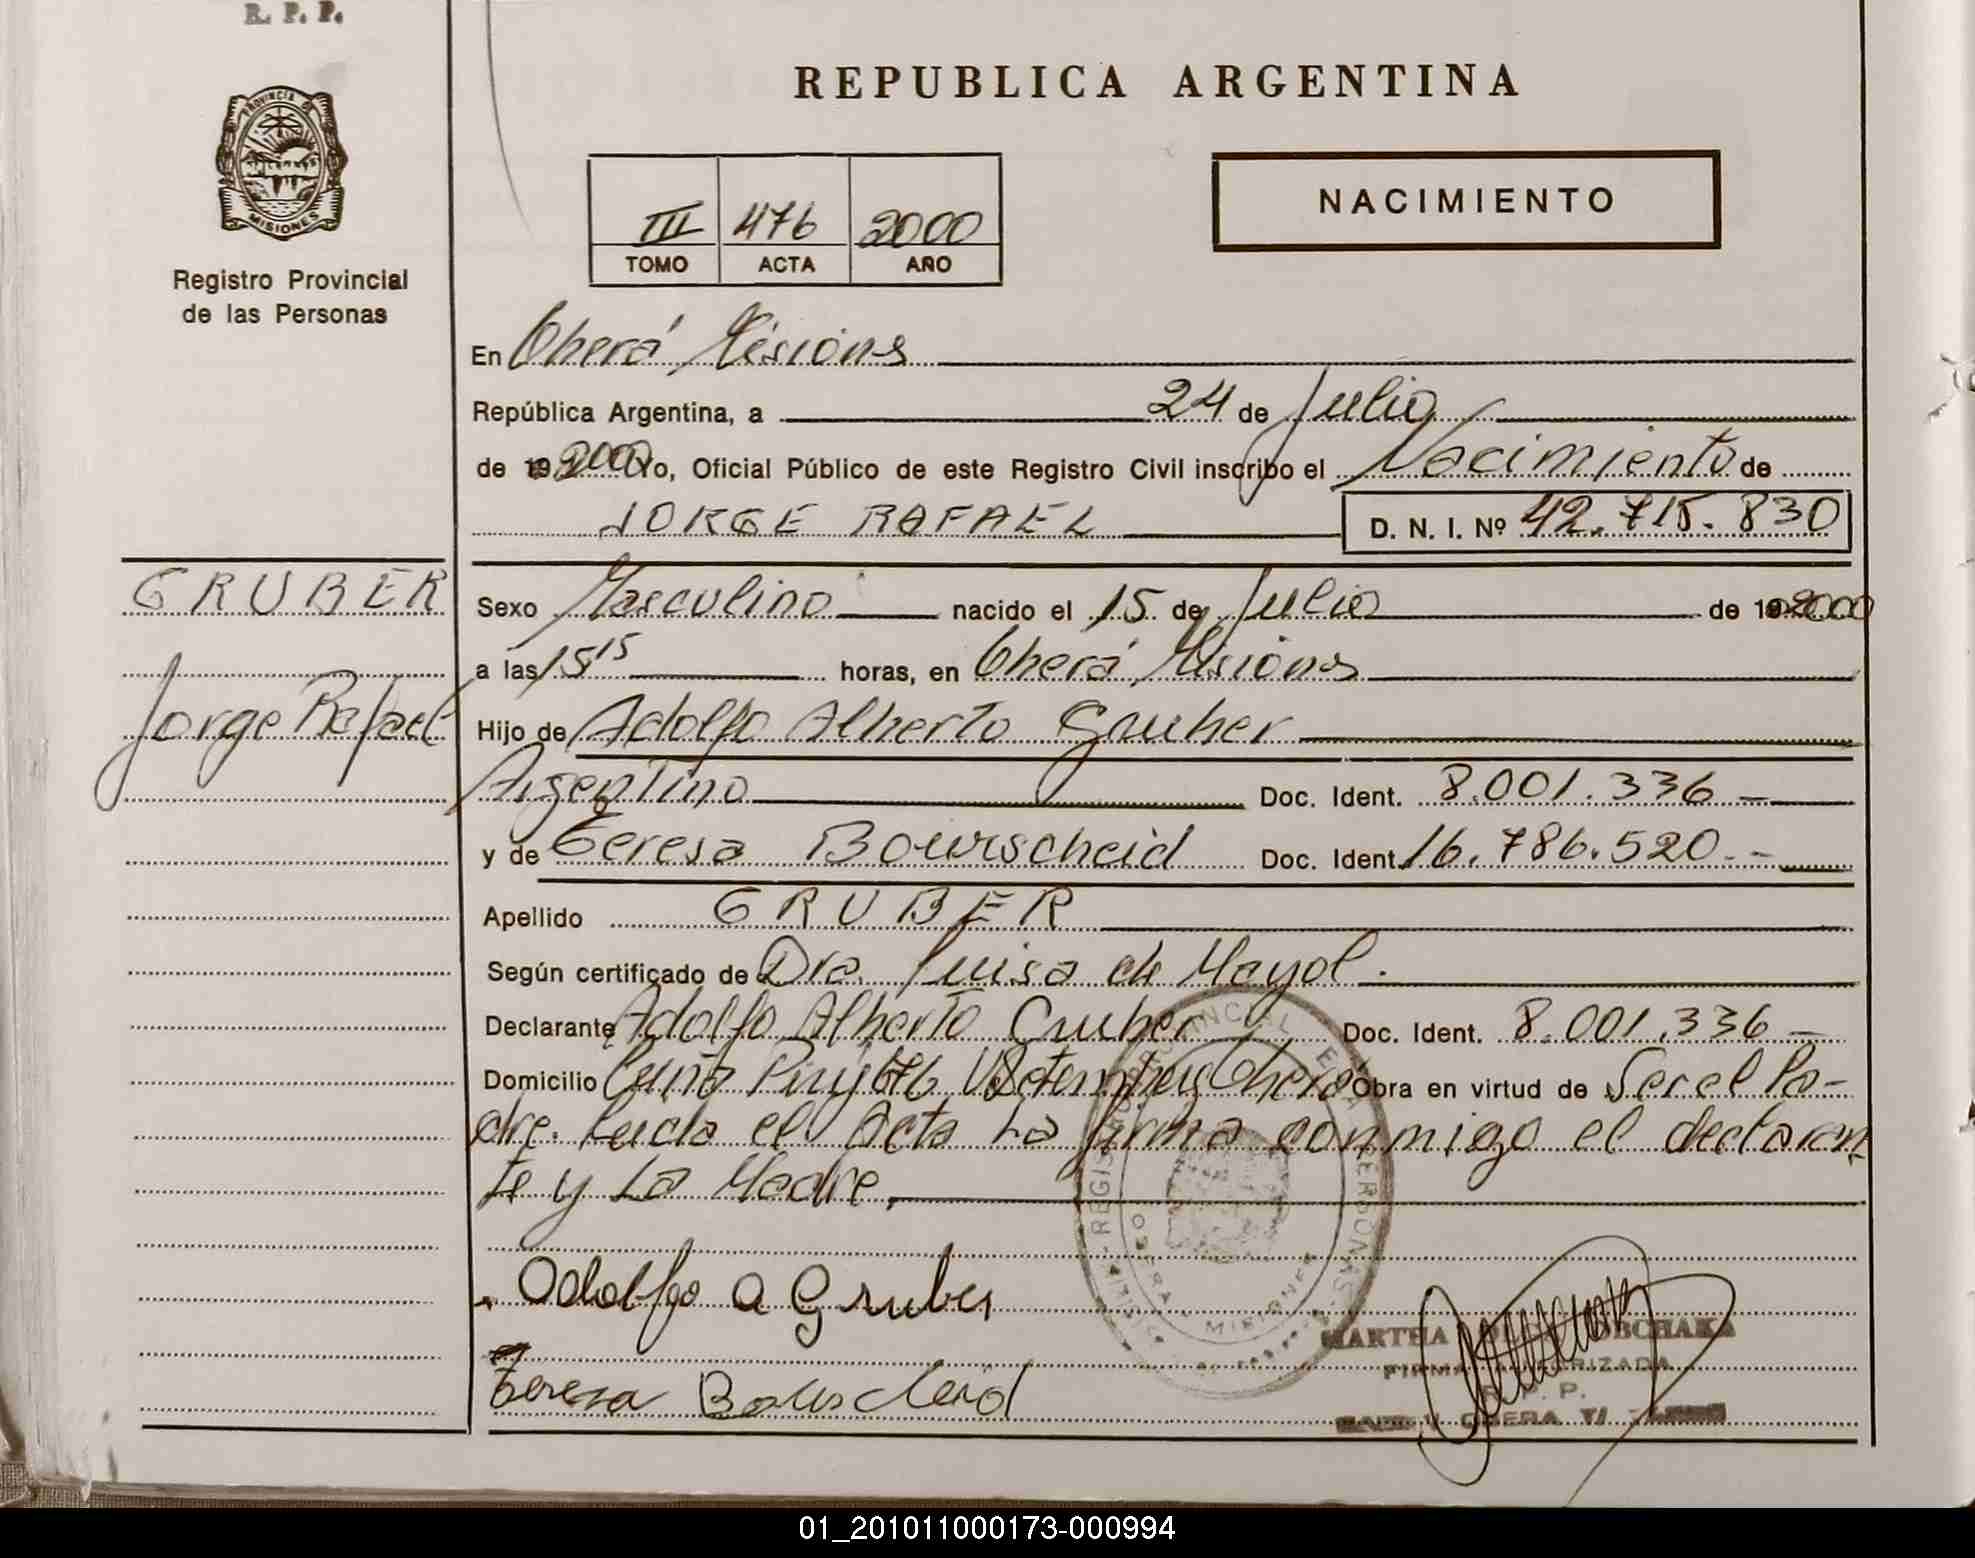 R. P. P.
PROVINCIA DE
MISIONES
Registro Provincial
de las Personas
REPUBLICA ARGENTINA
III 476 2000
TOMO ACTA AÑO
NACIMIENTO
En Oberá Misiones
República Argentina, a 24 de Julio
de 19 2000 Yo, Oficial Público de este Registro Civil inscribo el Nacimiento de
JORGE RAFAEL D. N. I. Nº 42.715.830
GRUBER
Jorge Rafael
Sexo Masculino nacido el 15 de Julio de 19 2000
a las 15 15 horas, en Oberá Misiones
Hijo de Adolfo Alberto Gruber
Argentino Doc. Ident. 8.001.336 –
y de Teresa Bourscheid Doc. Ident. 16.786.520.-
Apellido GRUBER
Según certificado de Dra. Luisa de Mayol.
Declarante Adolfo Alberto Gruber Doc. Ident. 8.001.336 –
Domicilio Cuña Pirú 676 Oberá Obra en virtud de Ser el Pa-
dre. Leida el Acta La firma conmigo el declaran-
te y La Madre.
Adolfo A Gruber
Teresa Bourscheid
REGISTRO PROVINCIAL DE LAS PERSONAS
OBERA - MISIONES
MARTHA
FIRMA AUTORIZADA
R. P. P.
OBERA
01_201011000173-000994